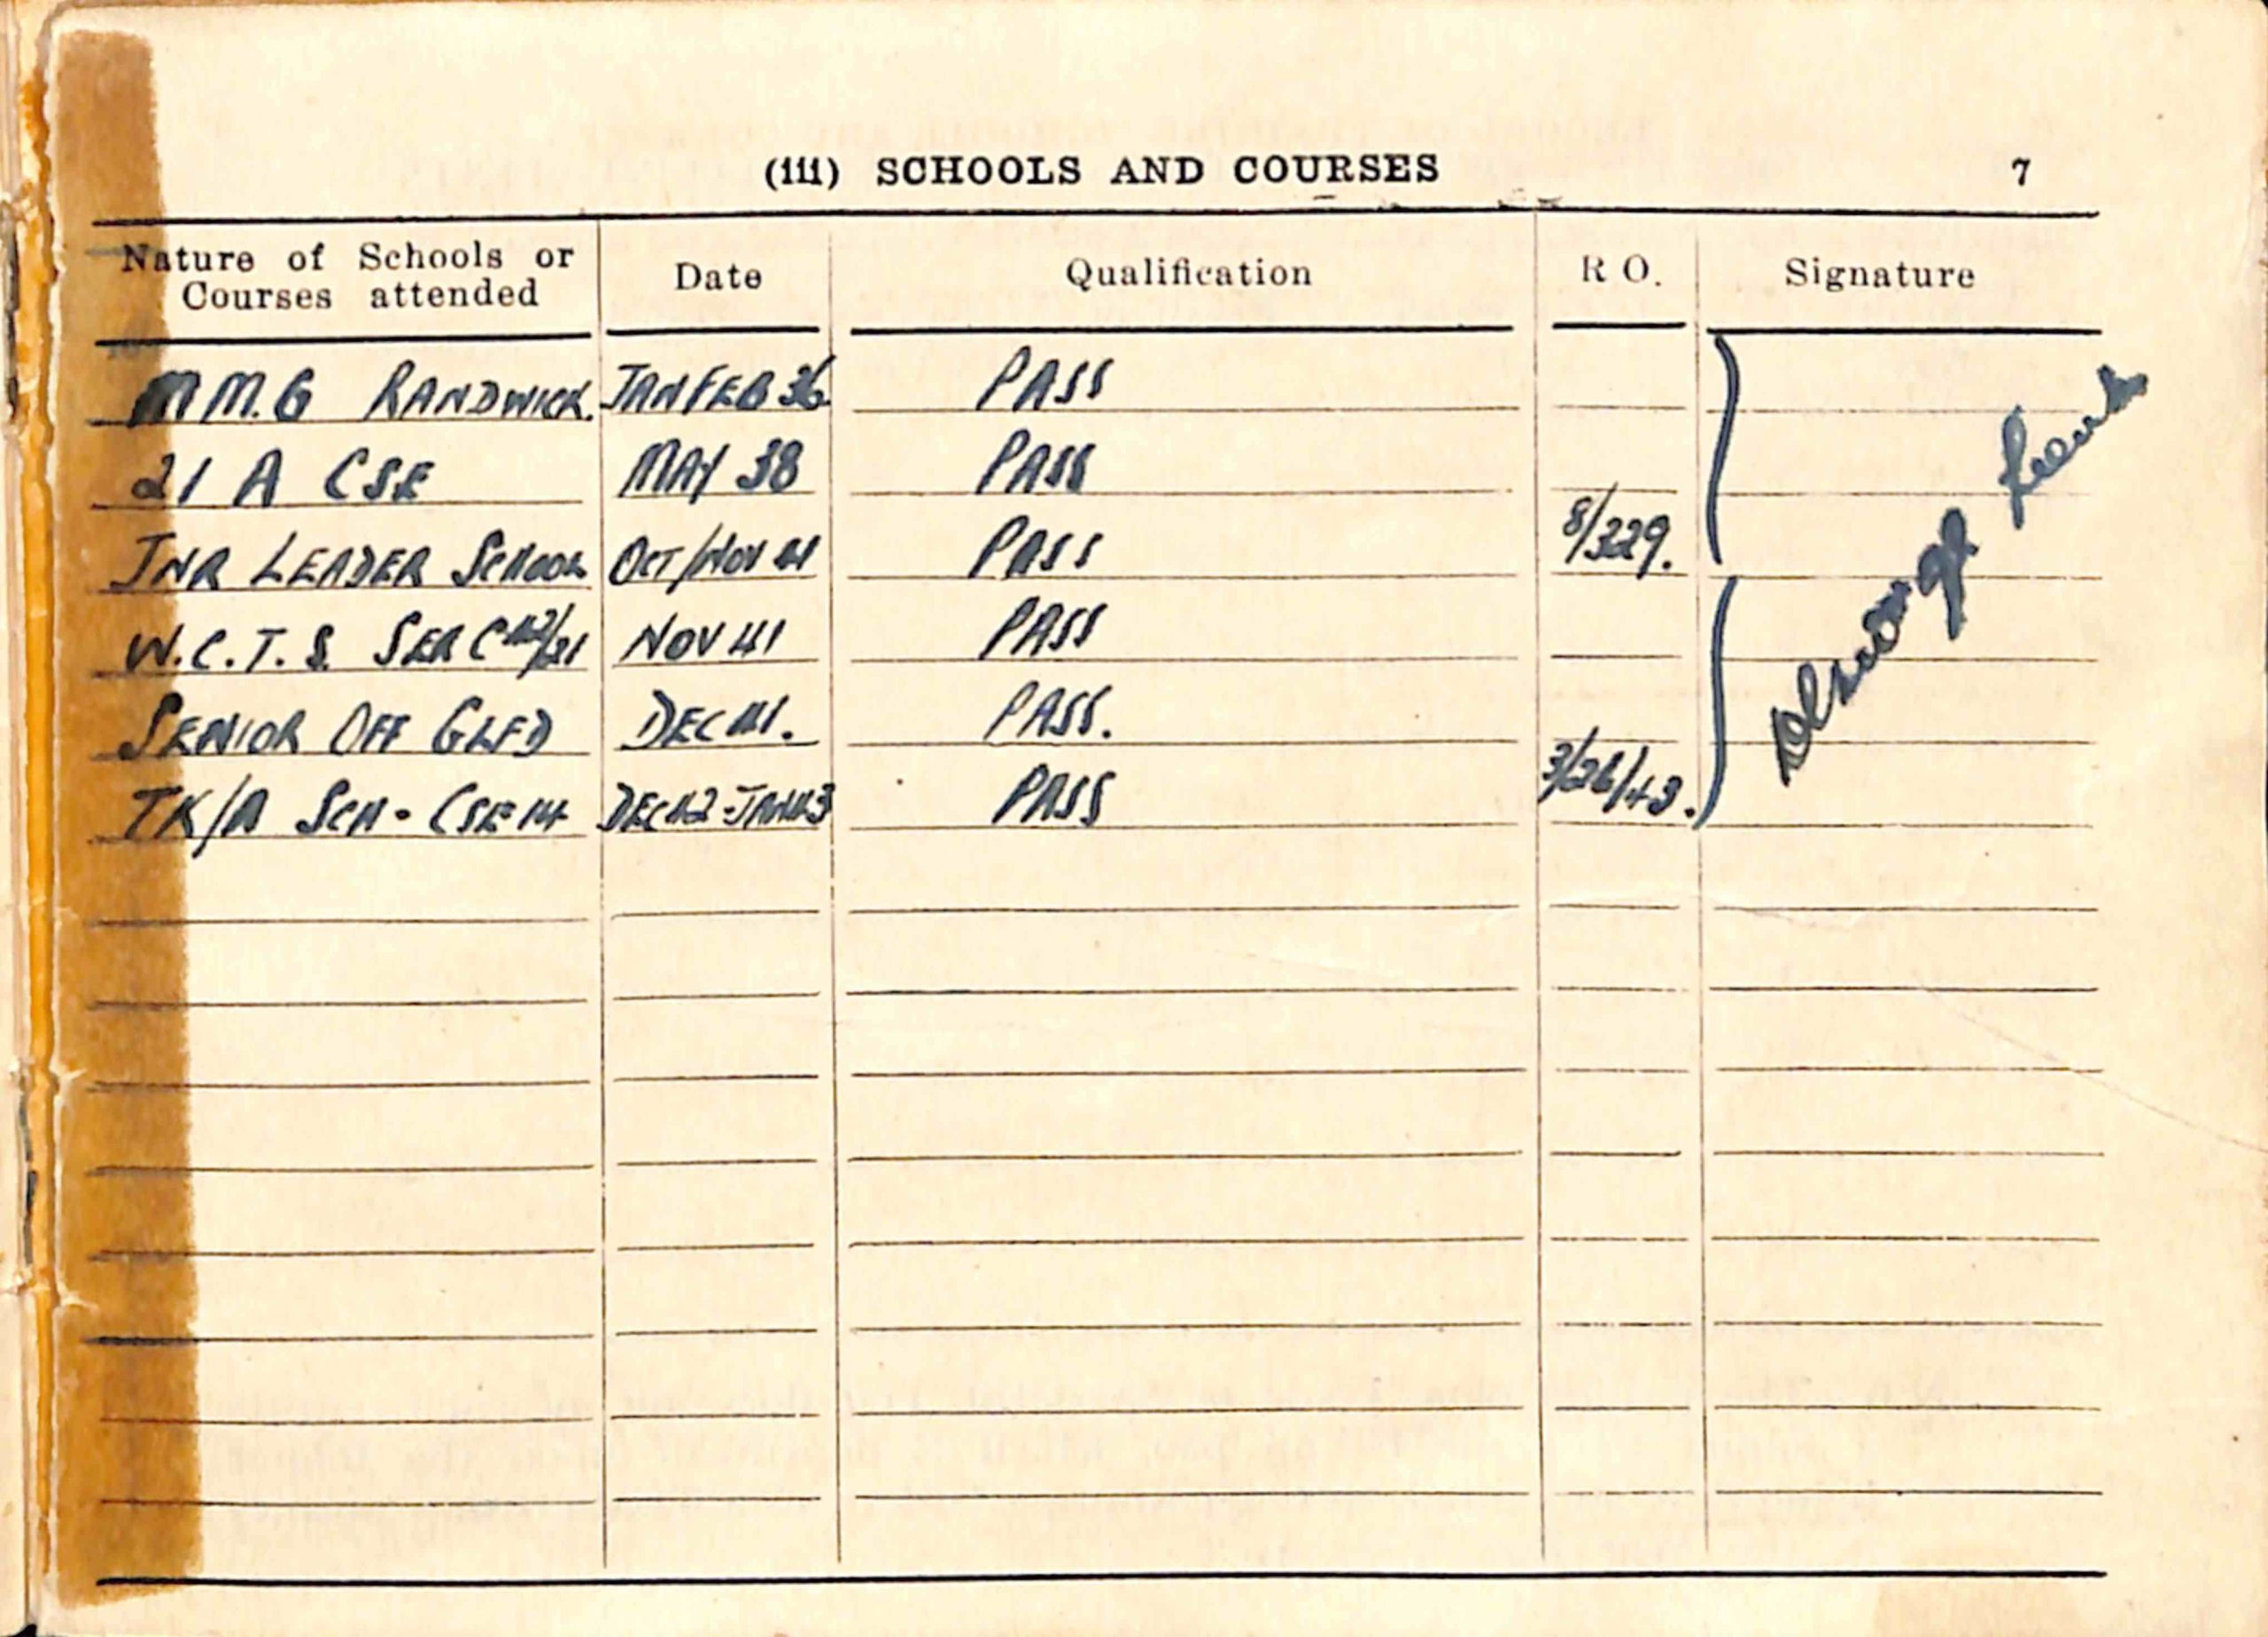 (iii) SCHOOLS AND COURSES 7
Nature of Schools or Courses attended Date Qualification R O. Signature
M M.G RANDWICK. JAN FEB 36 PASS
21 A CSE MAY 38 PASS
JNR LEADER SCHOOL OCT/NOV 41 PASS 8/329.
W.C.T.S. SER C NOV 41 PASS
SENIOR OFF GLFD DEC 41. PASS.
TK/A SCH - CSE 14 DEC 42 - JAN 43 PASS 3/26/43.
Lieut